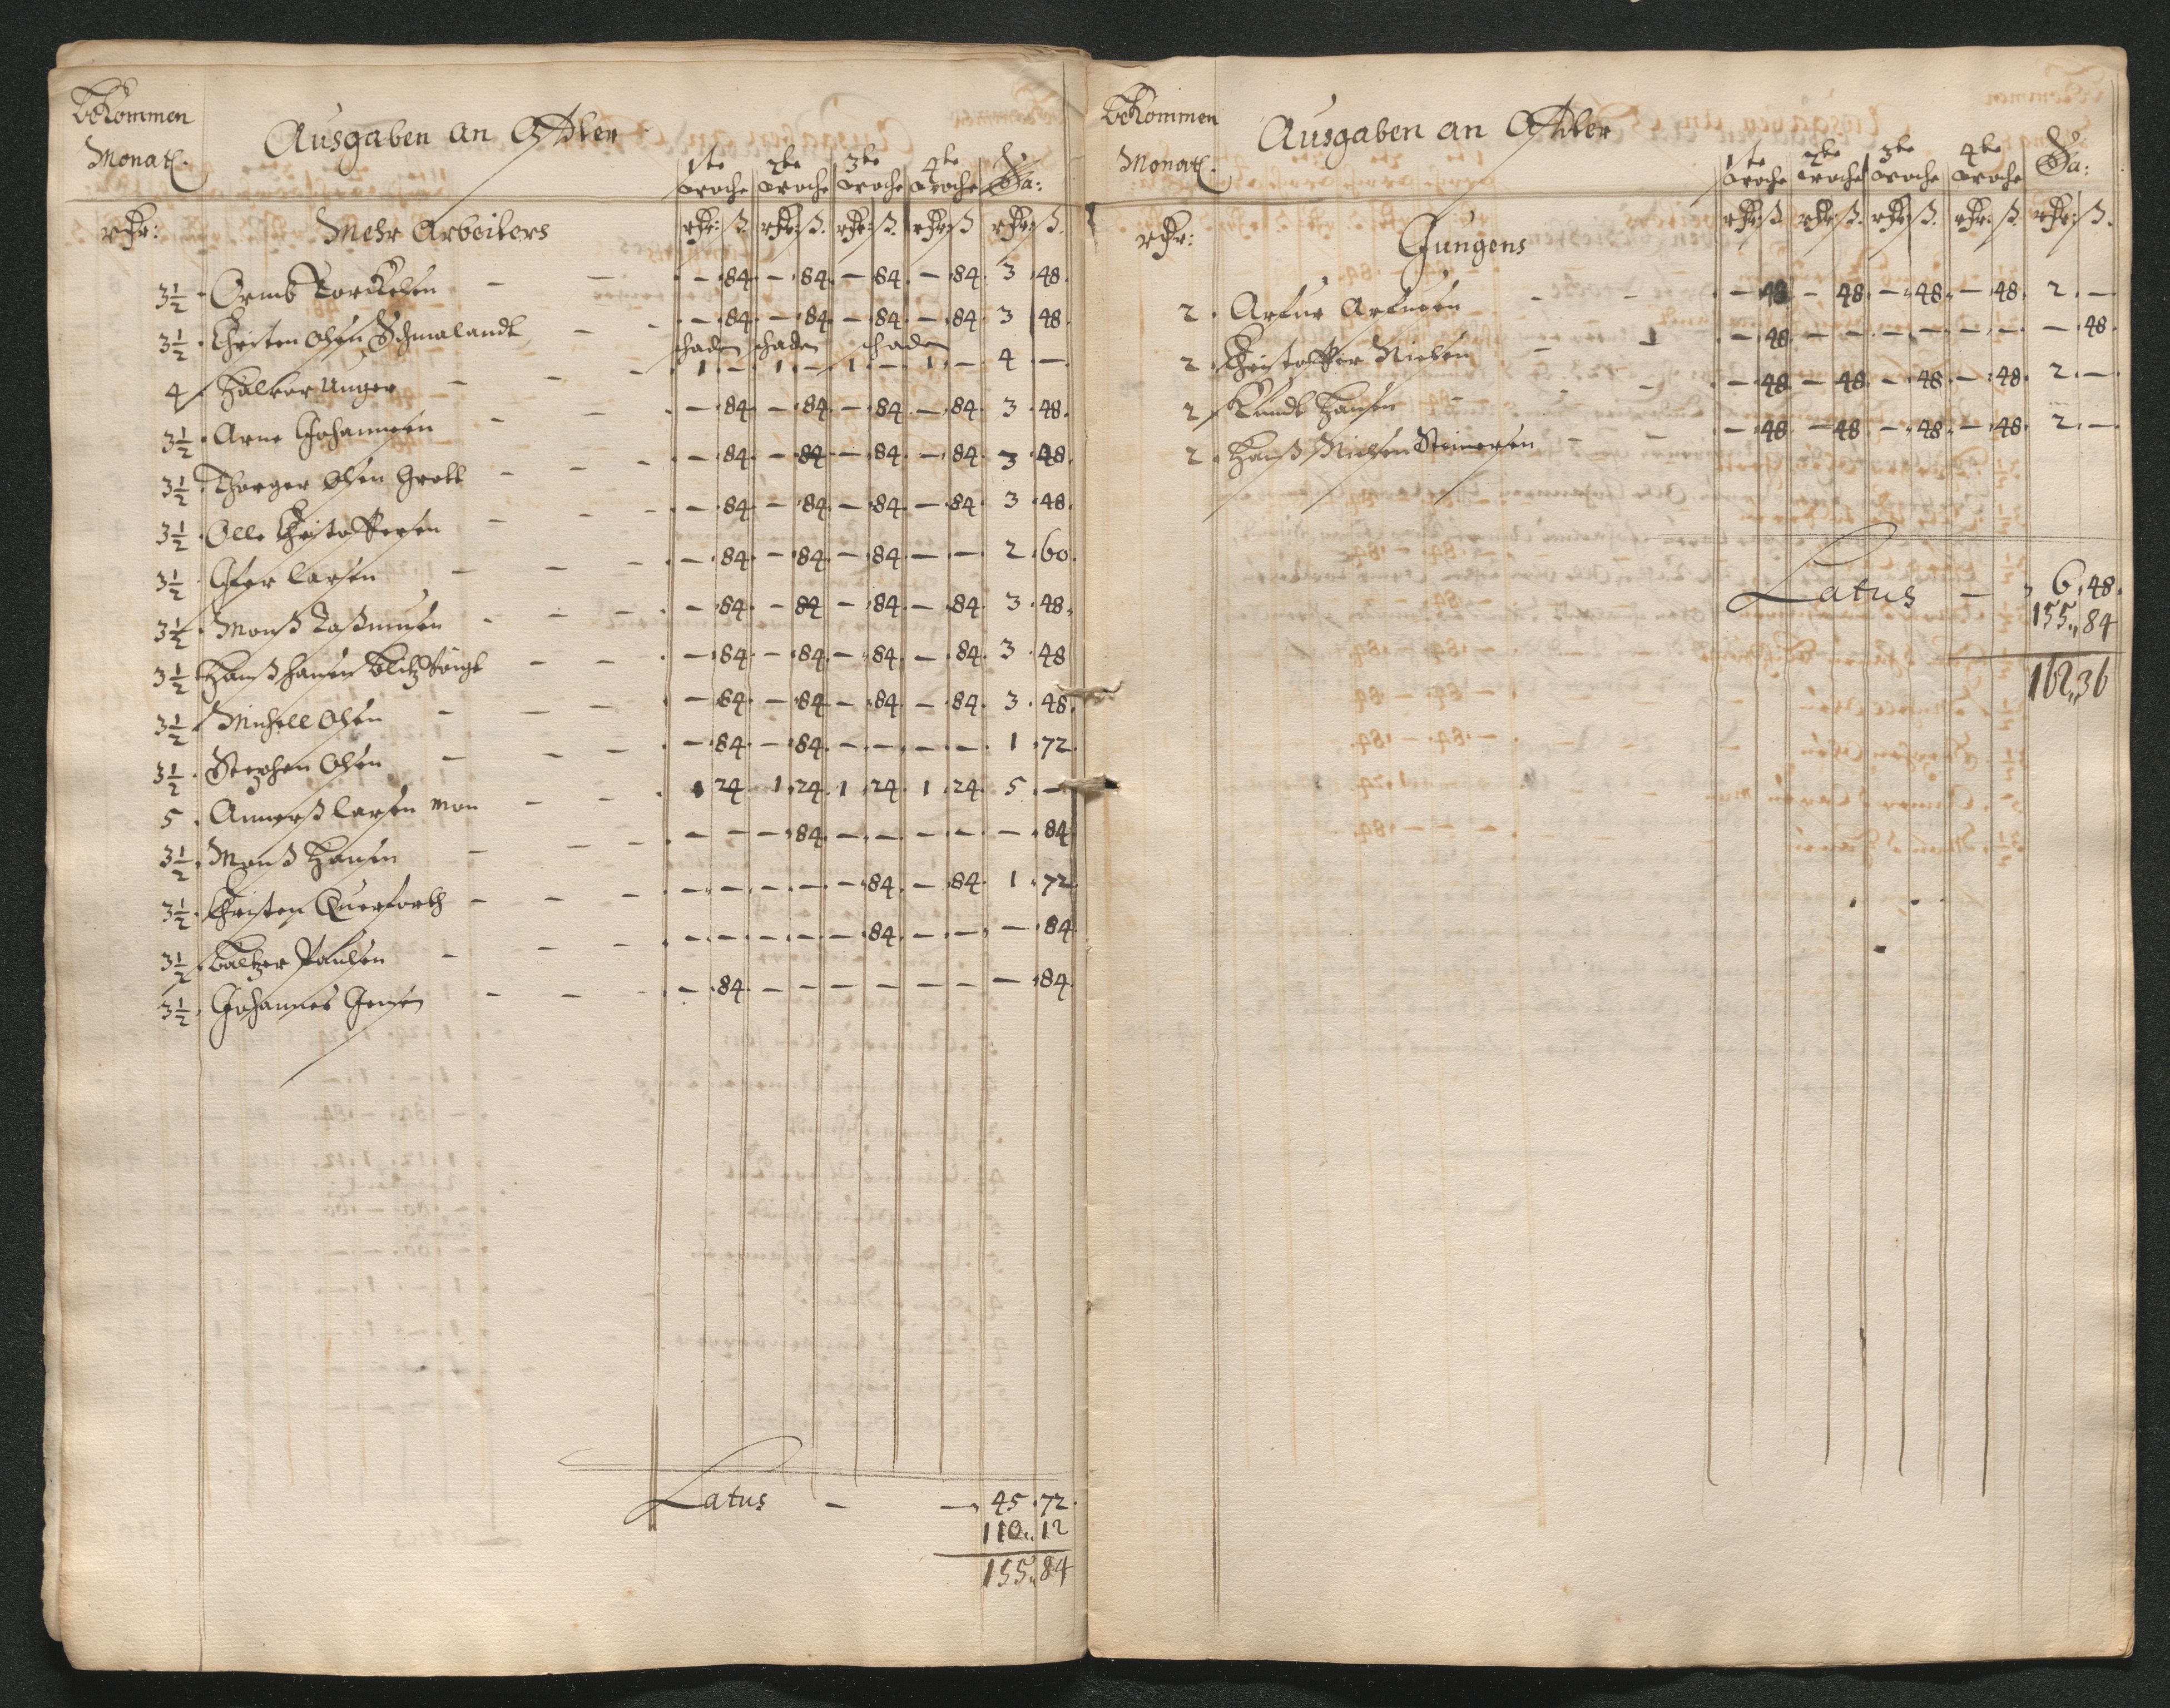 Bekommen
Monatl.
Ausgaben an Adler
1te woche 2te woche 3te woche 4te woche Sa:
rthr: Mehr Arbeiters rthr: ß. rthr: ß. rthr: ß. rthr: ß rthr: ß.
3½ Ormb Torckelsen — — — 84 — 84 — 84 — 84 3 48
3½ Christen Olsen Schmalandt — — — 84 — 84 — 84 — 84 3 48
schaden schaden schaden
4 Halvor Unger — — — 1 — 1 — 1 — 1 — 4 —
3½ Arne Johannsen — — — 84 — 84 — 84 — 84 3 48
3½ Thorger Olsen Grott — — — — 84 — 84 — 84 — 84 3 48
3½ Olle Christoffersen — — — — 84 — 84 — 84 — 84 3 48
3½ Ifer Larsen — — — — 84 — 84 — 84 — — 2 60
3½ Monß Raßmusen — — — — 84 — 84 — 84 — 84 3 48
3½ Hanß Hansen — — — 84 — 84 — 84 — 84 3 48
3½ Michell Olsen — — — — 84 — 84 — 84 — 84 3 48
3½ Stephen Olsen — — — — 84 — 84 — — — — 1 72
5 Annerß Larsen Mon — — 1 24 1 24 1 24 1 24 5 —
3½ Monß Hansen — — — — — — 84 — — — — — 84
3½ Christen Querforth — — — — — — — — 84 — 84 1 72
3½ Baltzer Paulsen — — — — — — — — 84 — — — 84
3½ Johannes Jensen — — — — 84 — — — — — — — 84
Latus — — 45 72
110 12
155 84
Bekommen
Monatl.
Ausgaben an Adler
1te woche 2te woche 3te woche 4te woche Sa:
rthr: Jungens rthr: ß. rthr: ß. rthr: ß. rthr: ß. rthr: ß.
2 Arfue Arfuesen — — — 48 — 48 — 48 — 48 2 —
2 Christoffer Nielsen — — — 48 — — — — — — — 48
2 Knudt Hansen — — — — 48 — 48 — 48 — 48 2 —
2 Hanß Nielsen Steinersen — — — 48 — 48 — 48 — 48 2 —
Latus — 6 48
155 84
162 36